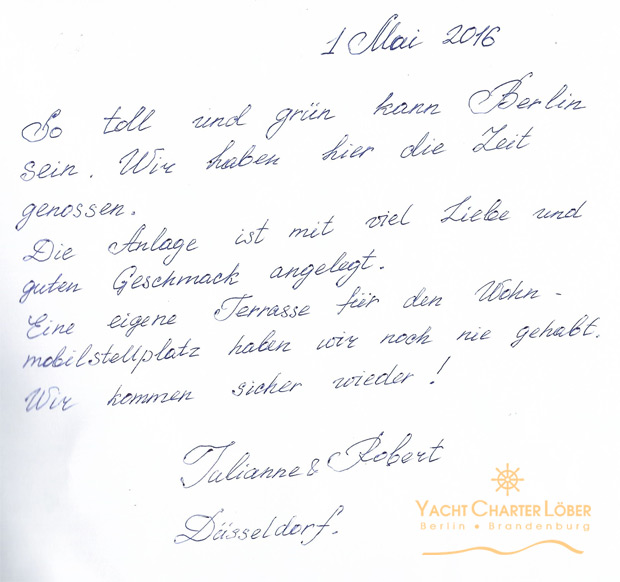 1 Mai 2016
So toll und grün kann Berlin
sein. Wir haben hier die Zeit
genossen.
Die Anlage ist mit viel Liebe und
guten Geschmack angelegt.
Eine eigene Terrasse für den Wohn-
mobilstellplatz haben wir noch nie gehabt.
Wir kommen sicher wieder!
Julianne & Robert
Düsseldorf.
YACHT CHARTER LÖBER
Berlin • Brandenburg